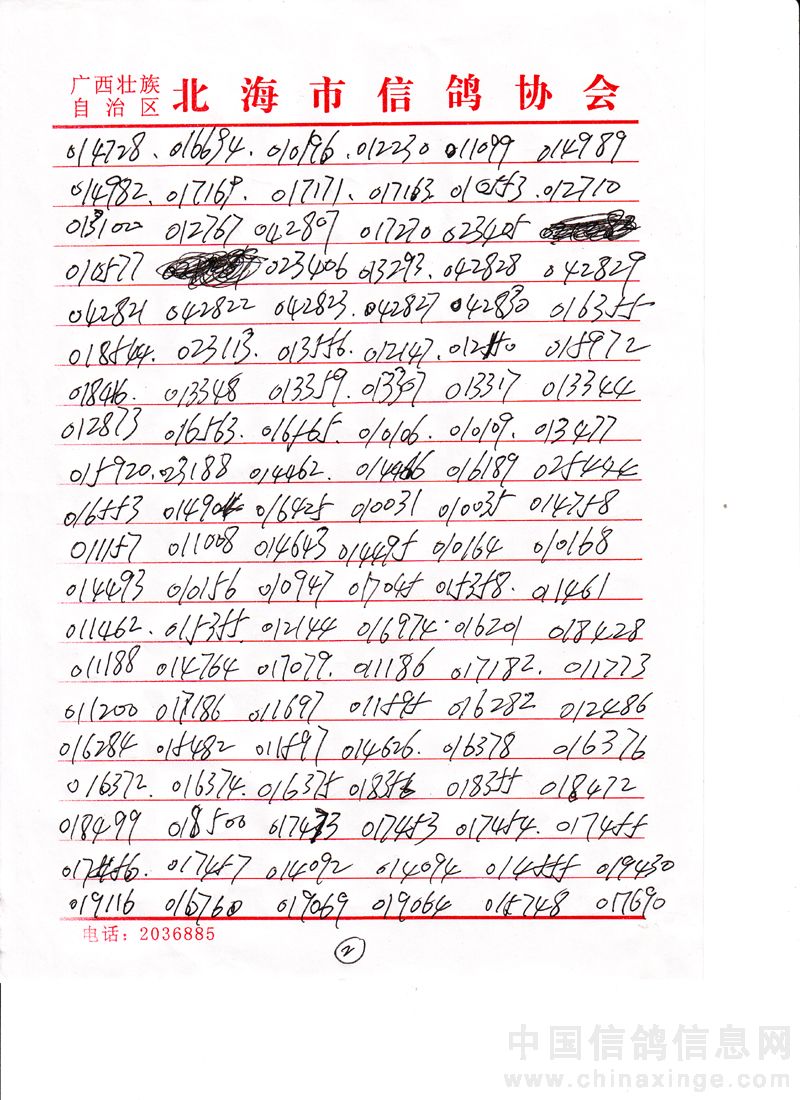 广西壮族
自治区 北海市信鸽协会
014728. 016694. 010196. 012230 011099 014989
014982. 017169. 017171. 017163. 010553. 012710
013100 012767 042807 017270 023405
010577 023406 013293. 042828 042829
042821 042822 042823. 042827 042830 016355
018544. 023113. 013556. 012147. 012550 015972
018416. 013348 013359. 013307 013317 013344
012873 016563. 016565. 010106. 010109. 013477
015920. 023188 014462. 014466 016189 025444
016553 014904 016425 010031 010035 014758
011157 011008 014643 014495 010164 010168
014493 010156 010947 017045 015358. 011461
011462. 015355. 012144 016974. 016201 018428
011188 014764 017079. 011186 017182. 011773
011200 017186 011697 011595 016282 012486
016284 015482 011597 014626. 016378 016376
016372. 016374. 016375 018356 018355 018472
018499 018500 017433 017453 017454. 017455
017456. 017457 014092 014094 014555 019430
019116 016760 019069 019064 015748 017690
电话：2036885
2
中国信鸽信息网
www.chinaxinge.com